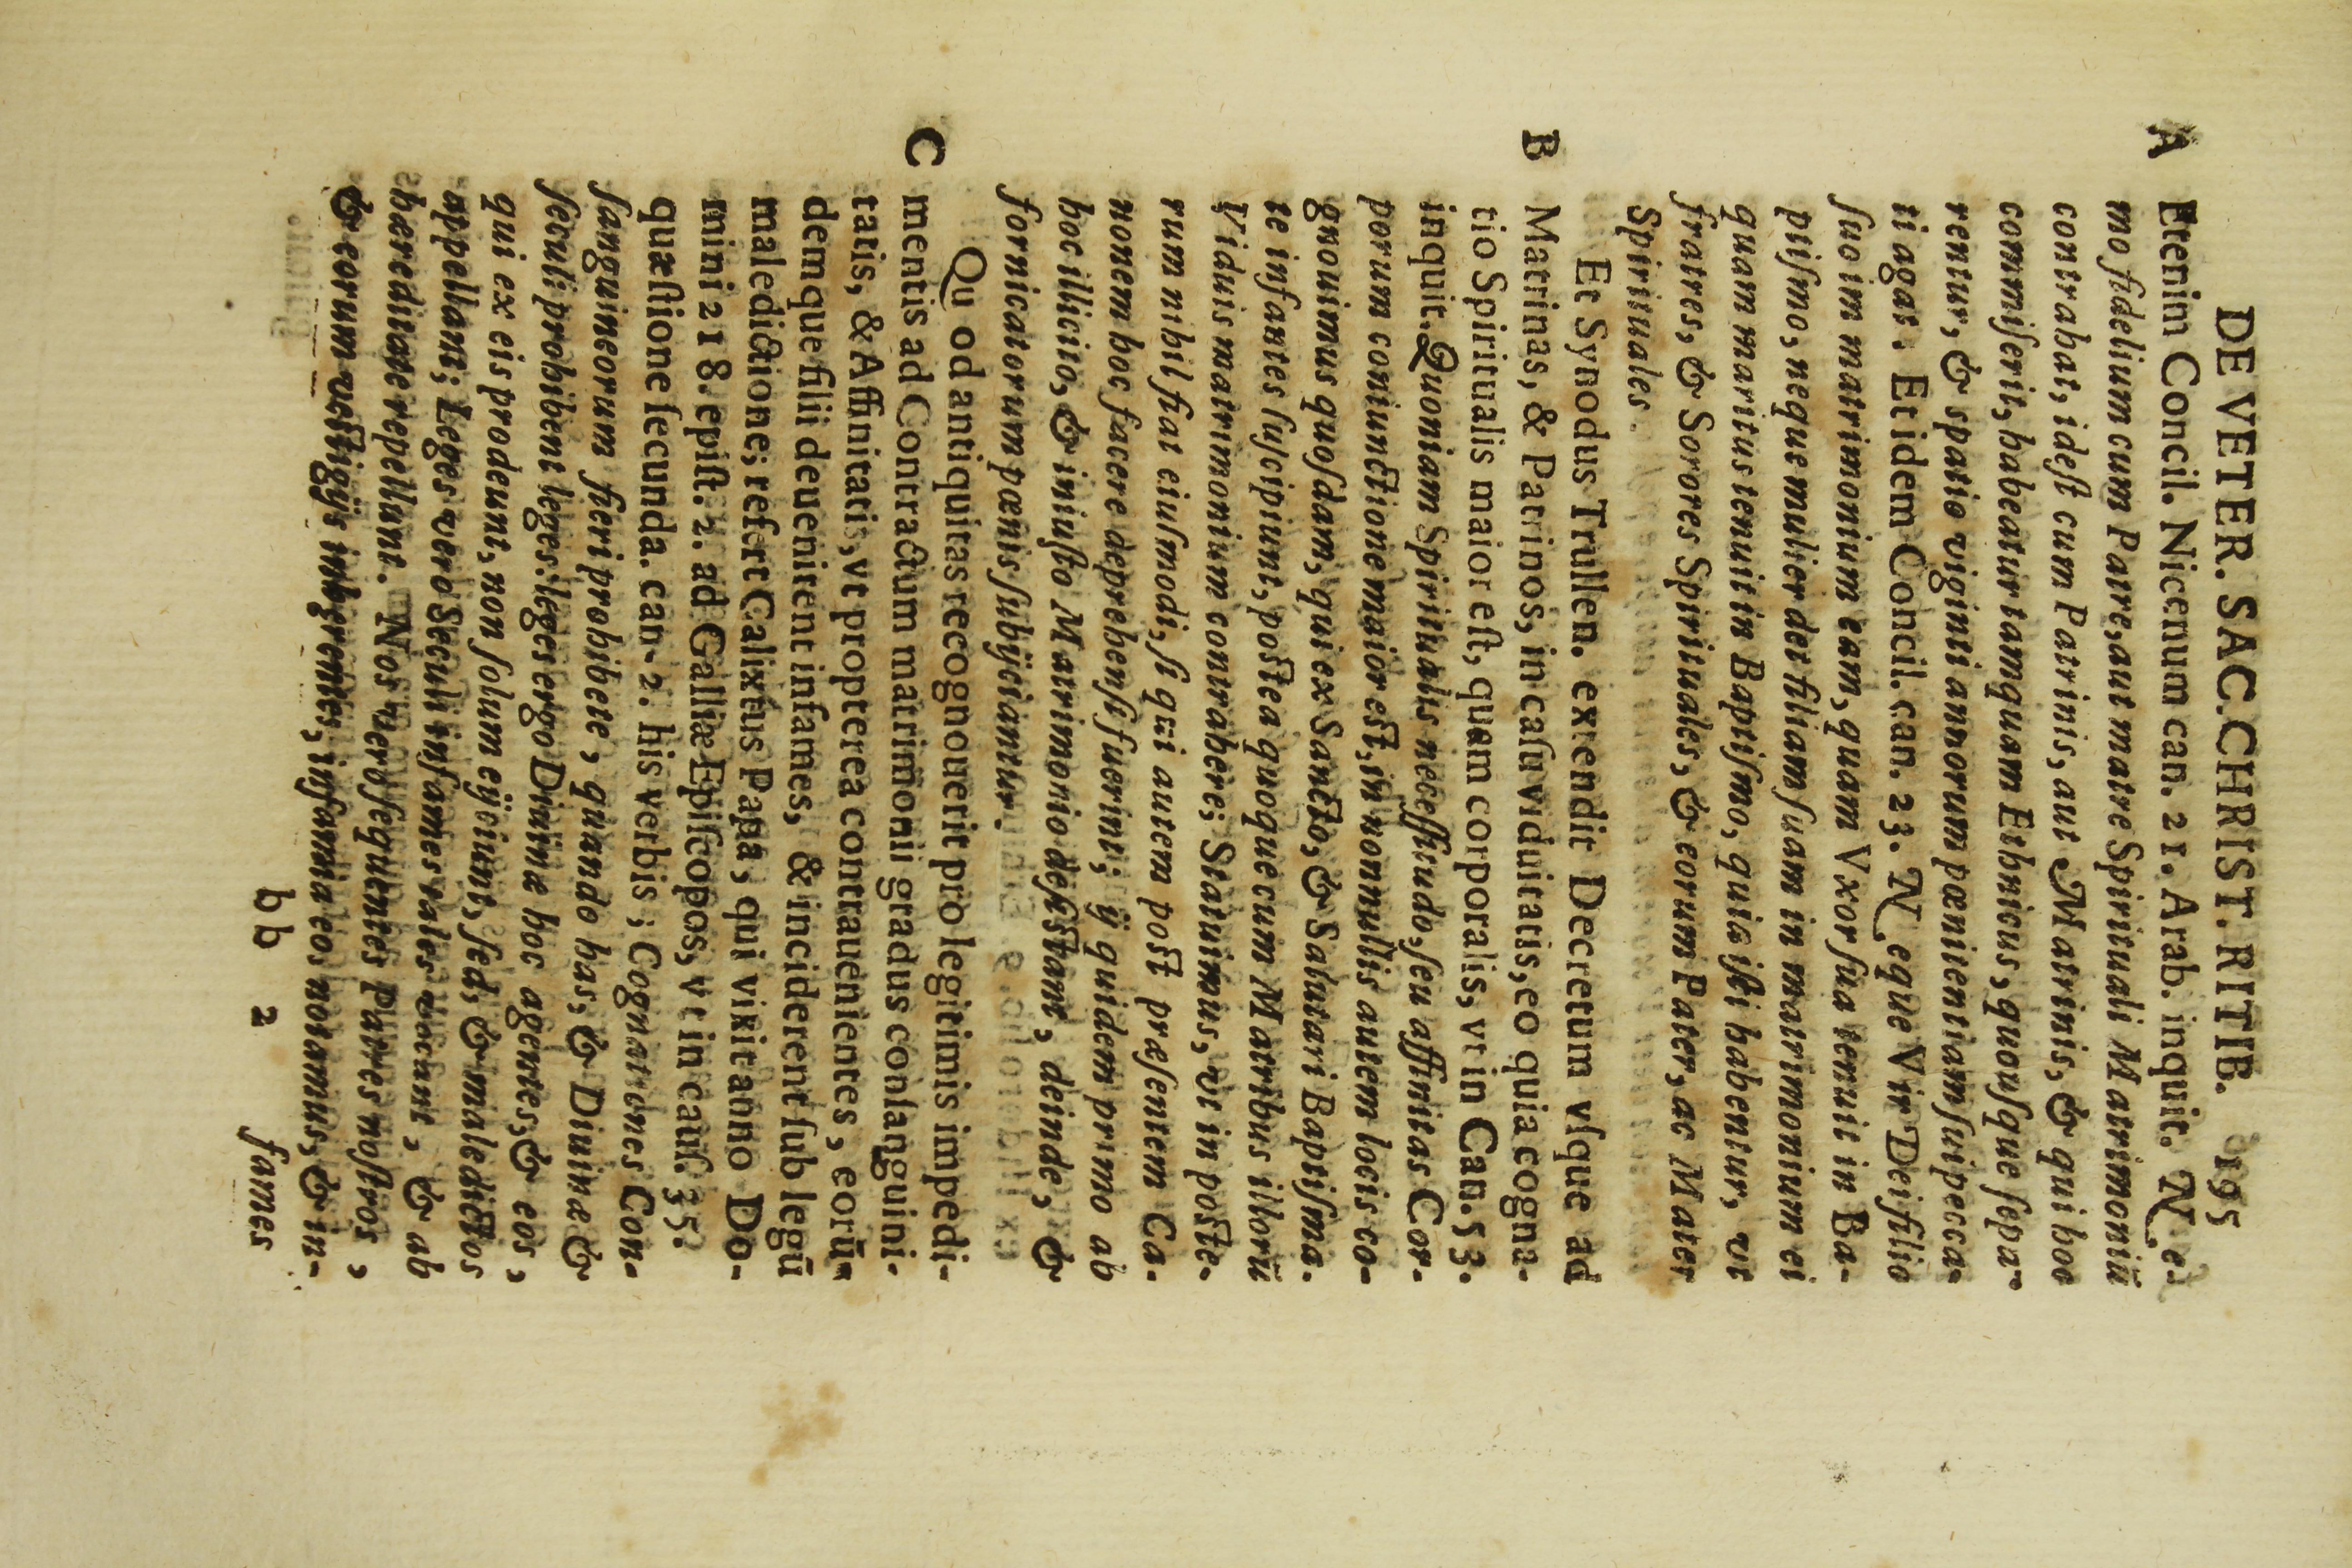 DE VETER. SAC. CHRIST. RITIB. 195
A Etenim Concil. Nicenum can. 21. Arab. inquit. Ne-
mo fidelium cum Patre, aut matre Spirituali Matrimoniū
contrahat, ideſt cum Patrinis, aut Matrinis, & qui hoc
commiſerit, habeatur tamquam Ethnicus, quouſque ſepa-
rentur, & spatio viginti annorum pœnitentiam ſui pecca-
ti agat. Et idem Concil. can. 23. Neque Vir Dei filio
ſuo in matrimonium eam, quam Vxor ſua tenuit in Ba-
ptiſmo, neque mulier det filiam ſuam in matrimonium ei
quam maritus tenuit in Baptiſmo, quia iſti habentur, vt
fratres, & Sorores Spirituales, & eorum Pater, ac Mater
Spirituales.
Et Synodus Trullen. extendit Decretum vſque ad
B Matrinas, & Patrinos, in caſu viduitatis, eo quia cogna-
tio Spiritualis maior eſt, quam corporalis, vt in Can. 53.
inquit. Quoniam Spiritualis neceſſitudo, ſeu affinitas Cor-
porum coniunctione maior eſt, in nonnullis autem locis co-
gnouimus quoſdam, qui ex Sancto, & Salutari Baptiſma-
te infantes ſuſcipiunt, poſtea quoque cum Matribus illorū
Viduis matrimonium contrahere; Statuimus, vt in poſte-
rum nihil fiat eiuſmodi, ſi qui autem poſt præſentem Ca-
nonem hoc facere deprehenſi fuerint; ÿ quidem primo ab
hoc illicito, & iniuſto Matrimonio deſiſtant, deinde, &
fornicatorum pœnis ſubijciantur.
Quod antiquitas recognouerit pro legitimis impedi-
C mentis ad Contractum matrimonii gradus conſanguini-
tatis, & Affinitatis, vt propterea contrauenientes, eorū-
demque filii deuenirent infames, & inciderent ſub legū
maledictione; refert Calixtus Papa, qui vixit anno Do-
mini 218. epiſt. 2. ad Galliæ Epiſcopos, vt in cauſ. 35.
quæſtione ſecunda. can. 2. his verbis; Cognationes Con-
ſanguineorum fieri prohibete, quando has, & Diuinæ &
ſeculi prohibent leges: leges ergo Diuinæ hoc agentes, & eos,
qui ex eis prodeunt, non ſolum eÿciunt, ſed, & maledictos
appellant; Leges vero Seculi infames tales vocant, & ab
hæreditate repellunt. Nos vero ſequentes Patres noſtros,
& eorum veſtigÿs inhærentes, infamia eos notamus, & in-
bb 2 fames